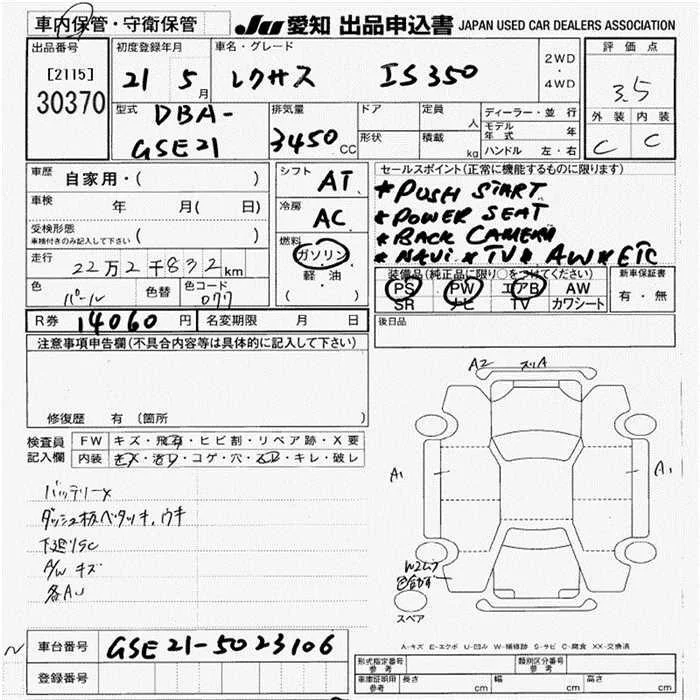 車内保管・守衛保管
JU 愛知 出品申込書 JAPAN USED CAR DEALERS ASSOCIATION
出品番号
[2115]
30370
初度登録年月
21 5月
車名・グレード
レクサス IS350
2WD
・
4WD
評価点
3.5
外装 内装
C C
型式
DBA-
GSE21
排気量
3450 CC
ドア
形状
定員 人
積載 kg
ディーラー・並行
モデル年式 年
ハンドル 左・右
車歴 自家用・( )
車検 年 月( 日)
受検形態
車検付きのみ記入して下さい ( )
走行 22万2千832km
色 パール
色替
色コード 077
シフト AT
冷房 AC
燃料
ガソリン
・
軽・油
( )
セールスポイント(正常に機能するものに限ります)
*PUSH START
*POWER SEAT
*BACK CAMERA
*NAVi *TV* AW*ETC
装備品(純正品に限り○をつけてください)
PS PW エアB AW
SR ナビ TV カワシート
新車保証書
有・無
R券 14060円
名変期限 月 日
後日品
注意事項申告欄(不具合内容等は具体的に記入して下さい)
修復歴 有 (箇所 )
検査員記入欄
FW キズ・飛石・ヒビ割・リペア跡・X要
内装 キズ・汚レ・コゲ・穴・スレ・キレ・破レ
バッテリーX
ダッシュ板ベタツキ、ウキ
下廻りSC
A/W キズ
各AU
A2 スリA
A1
A1
W2ムラ
スペア
A-キズ E-エクボ U-凹み W-補修跡 S-サビ C-腐食 XX-交換済
車台番号 GSE21-5023106
登録番号
形式指定番号 参考
類別区分番号 参考
車庫証明用 参考 長さ cm 幅 cm 高さ cm